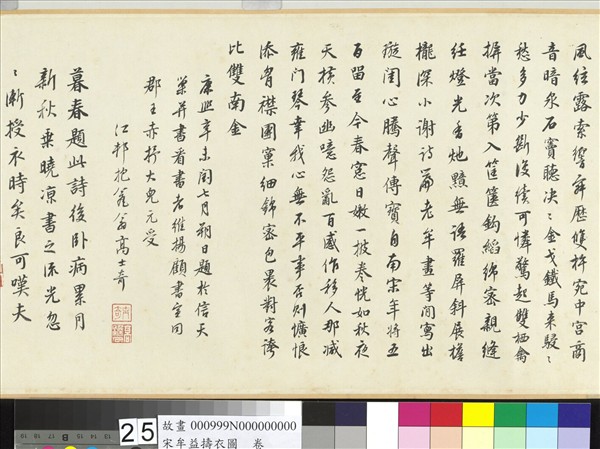 風弦露索響寂歷雙杵宛中宮商
音暗泉石竇聽決〻金戈鐵馬來駸〻
愁多力少斷復續可憐驚起雙栖禽
搟當次第入筐篋鉤縚綿密親縫
紝燈光香灺黯無語羅屏斜展檐
櫳深小謝詩篇老牟畫等閒寫出
璇閨心騰聲傳寶自南宋年將五
百留至今春窓日嫩一披卷恍如秋夜
天橫參幽噫怨亂百感作移人那減
雍门琴幸我心無不平事否則懭悢
添胷襟團窠細錦密包裹對客誇
比雙南金
康熙辛未閏七月朔日題於信天
巢并書者書名維揚顧書宣同
郡王赤抒大兒元受
江邨抱瓮翁高士奇
暮春題此詩後卧病累月
新秋乗曉凉書之流光忽
〻漸授衣時矣良可嘆夫
25
故畫 000999N000000000
宋牟益擣衣圖 卷